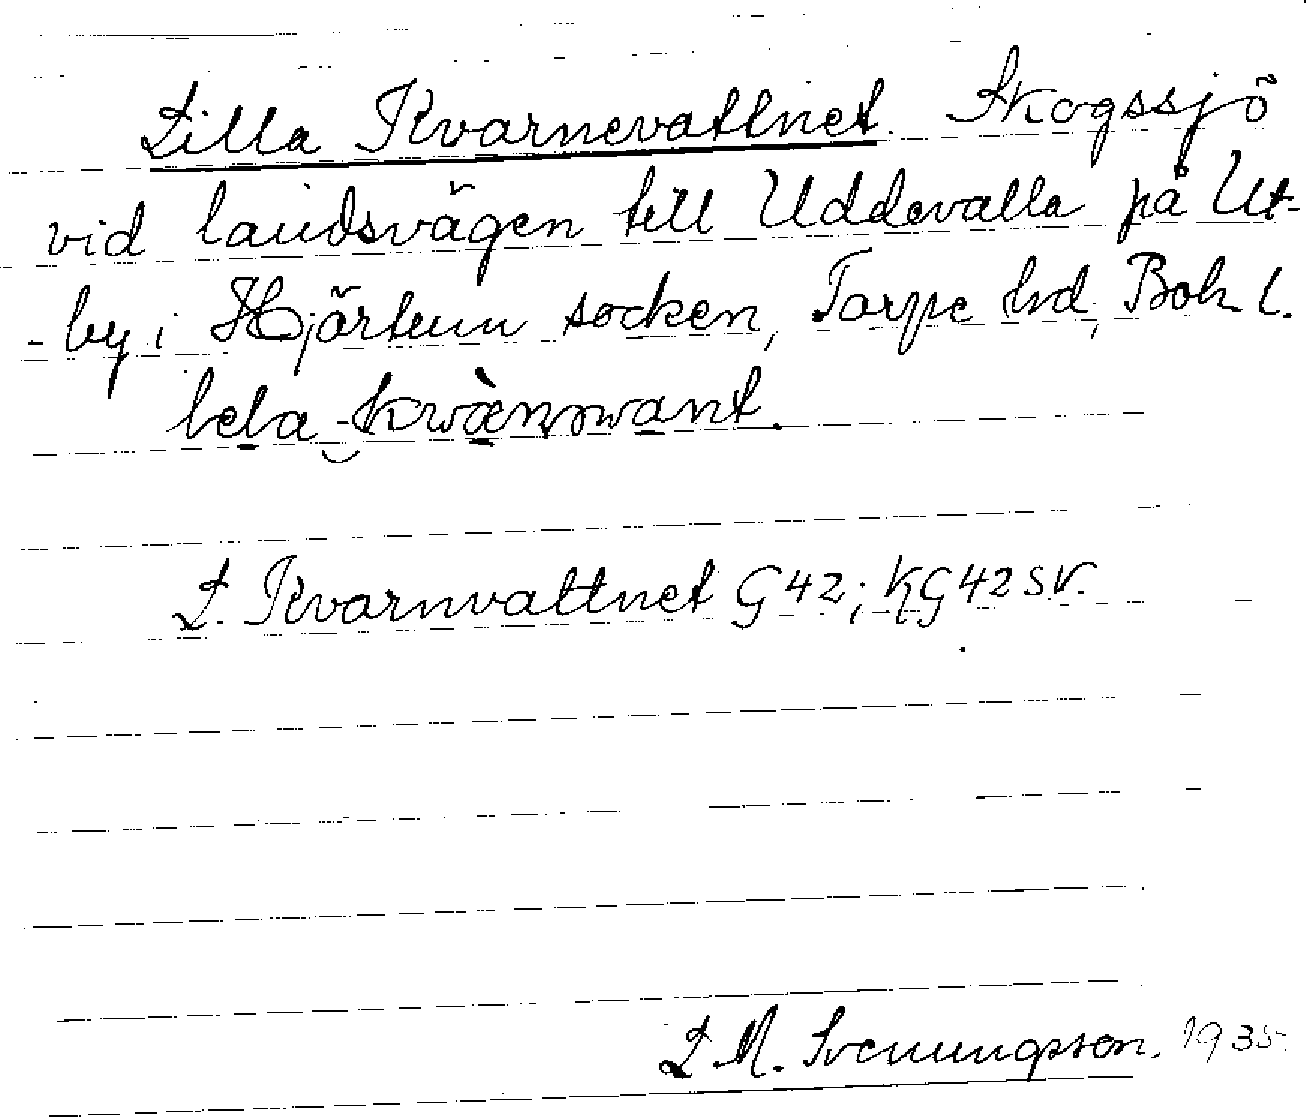 Lilla Kvarnevattnet. Skogssjö
vid landsvägen till Uddevalla på Ut-
-by i Hjärtum socken, Torpe hd, Boh. l.
L. Kvarnvattnet G42; KG42SV.
L M. Svenungsson. 1935.